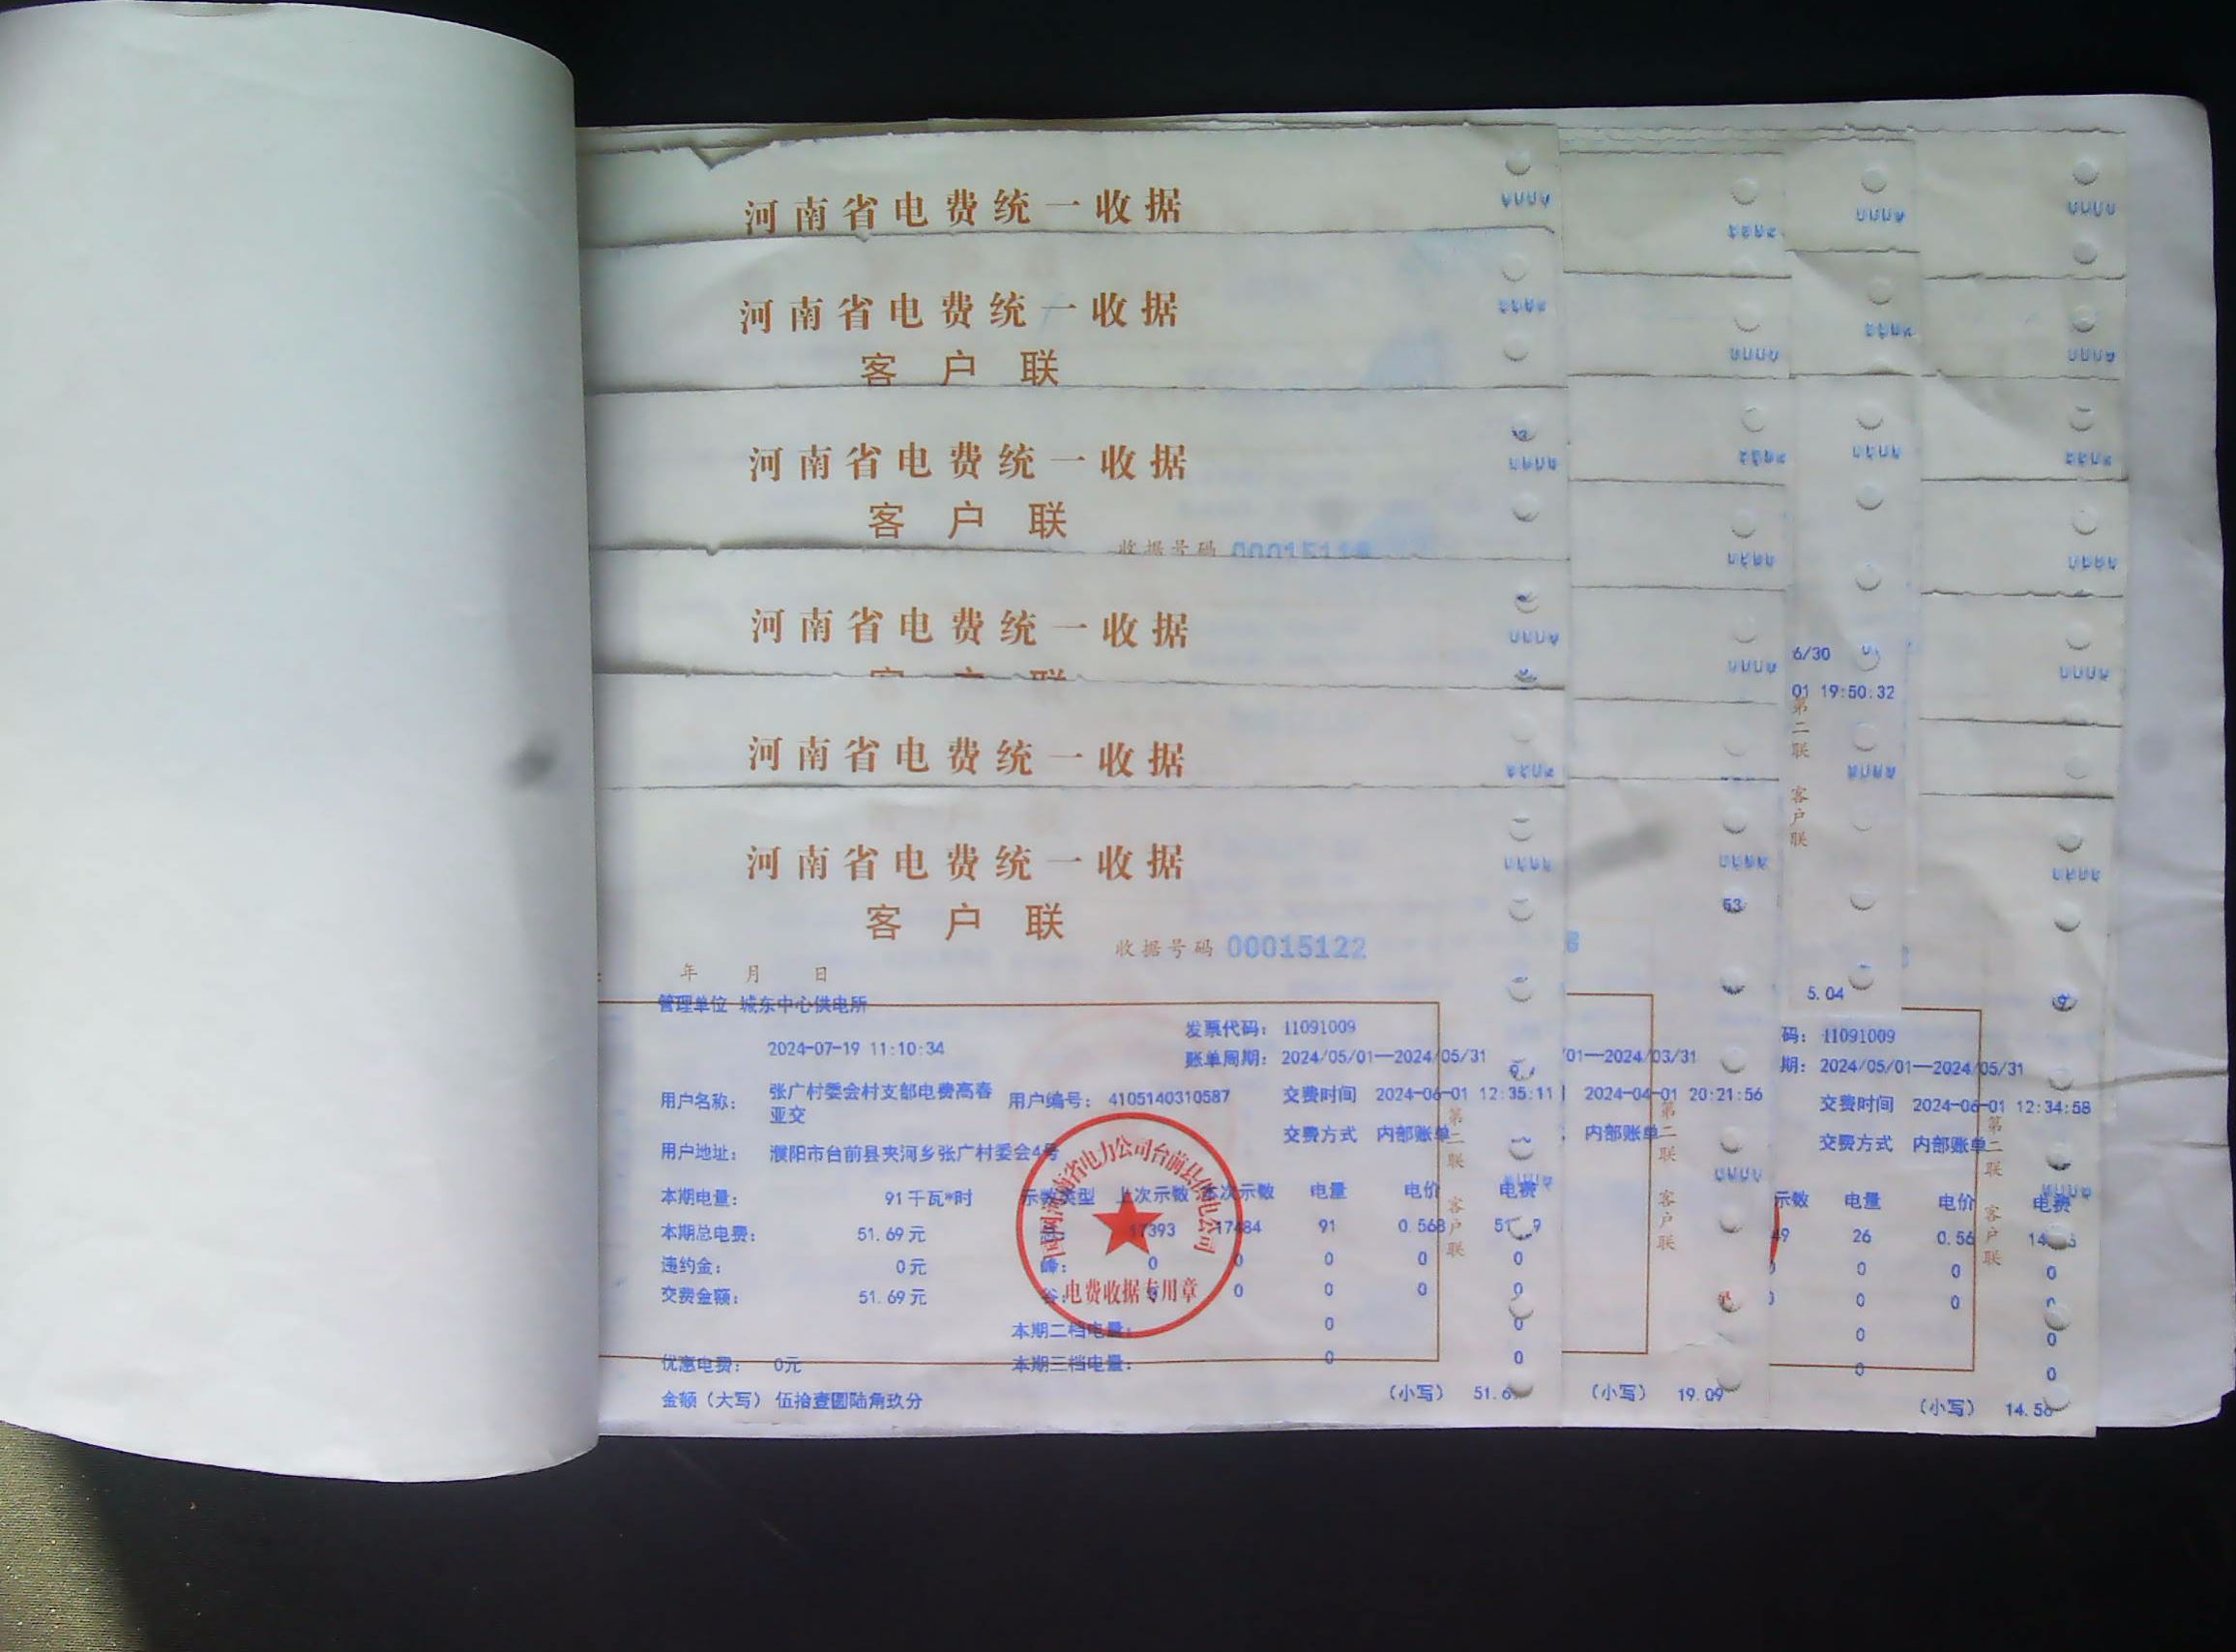 河南省电费统一收据
河南省电费统一收据
客户联
河南省电费统一收据
客户联
收据号码
河南省电费统一收据
河南省电费统一收据
河南省电费统一收据
客户联
收据号码 00015122
年 月 日
管理单位 城东中心供电所
2024-07-19 11:10:34
发票代码: 11091009
账单周期: 2024/05/01—2024/05/31
用户名称: 张广村委会村支部电费高春亚交
用户编号: 4105140310587
交费时间 2024-06-01 12:35:11
用户地址: 濮阳市台前县夹河乡张广村委会4号
交费方式 内部账单
本期电量: 91千瓦*时
示数类型 上次示数 本次示数 电量 电价 电费
本期总电费: 51.69元
17393 17484 91 0.568
违约金: 0元
峰: 0 0 0 0 0
交费金额: 51.69元
谷: 0 0 0 0 0
本期二档电量: 0 0
优惠电费: 0元
本期三档电量: 0 0
金额（大写） 伍拾壹圆陆角玖分
（小写） 51.6
第二联 客户联
省电力公司台前县供电公司
电费收据专用章
53
01—2024/03/31
2024-04-01 20:21:56
内部账单
第二联 客户联
（小写） 19.09
6/30
01 19:50:32
第二联 客户联
5.04
码: 11091009
期: 2024/05/01—2024/05/31
交费时间 2024-06-01 12:34:58
交费方式 内部账单
示数 电量 电价 电费
49 26 0.56
0 0 0
0 0
0 0
0 0
第二联 客户联
（小写） 14.56